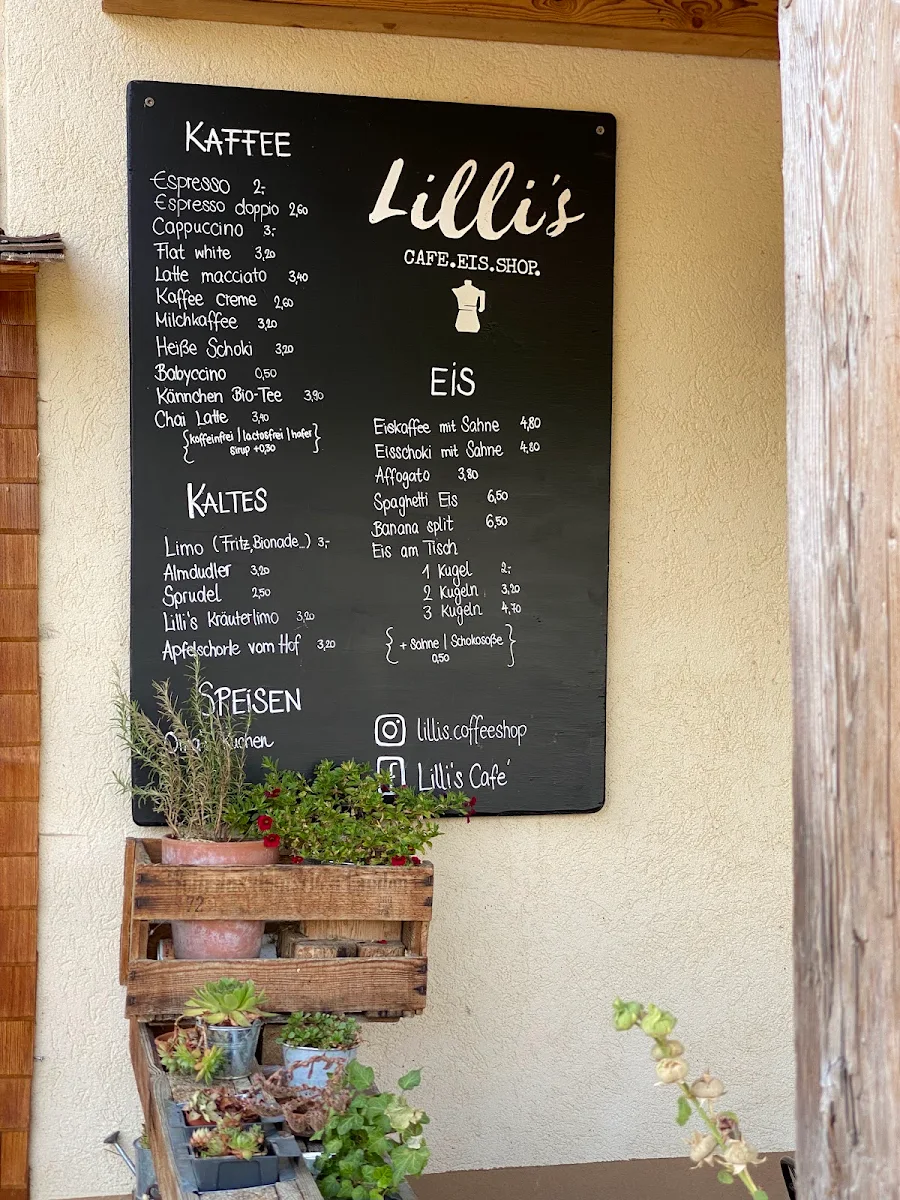 KAFFEE
Espresso 2,-
Espresso doppio 2,60
Cappuccino 3,-
Flat white 3,20
Latte macciato 3,40
Kaffee creme 2,60
Milchkaffee 3,20
Heiße Schoki 3,20
Babyccino 0,50
Kännchen Bio-Tee 3,90
Chai Latte 3,40
{koffeinfrei | lactosfrei | hafer
sirup +0,30}
KALTES
Limo (Fritz, Bionade...) 3,-
Almdudler 3,20
Sprudel 2,50
Lilli's Kräuterlimo 3,20
Apfelschorle vom Hof 3,20
SPEISEN
Kuchen
Lilli's
CAFE.EIS.SHOP.
EIS
Eiskaffee mit Sahne 4,80
Eisschoki mit Sahne 4,80
Affogato 3,80
Spaghetti Eis 6,50
Banana split 6,50
Eis am Tisch
1 Kugel 2,-
2 Kugeln 3,20
3 Kugeln 4,70
{+ Sahne | Schokosoße}
0,50
lillis.coffeeshop
Lilli's Café
72